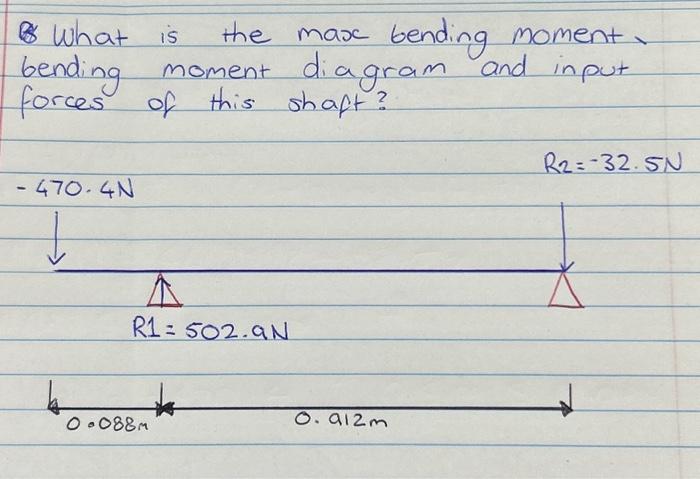 What is the max bending moment,
bending moment diagram and input
forces of this shaft?
R2=-32.5N
-470.4N
R1=502.9N
0.088m
0.912m